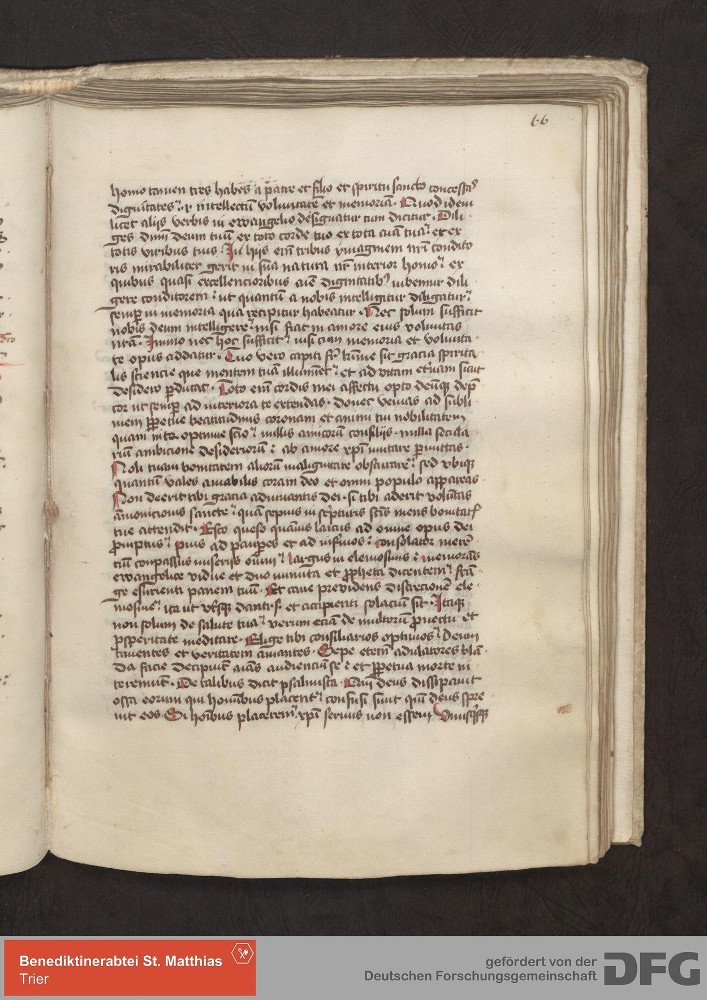 66
homo tamen tres habens a patre et filio et spiritu sancto concessas
dignitates .i. intellectum voluntatem et memoriam. Quod idem
licet aliis verbis in ewangelio designatur cum dicitur. Dili
ges dominum deum tuum ex toto corde tuo ex tota anima tua et ex
totis viribus tuis. In hiis enim tribus ymaginem nostri condito
ris mirabiliter gerit in sua natura noster interior homo. ex
quibus quasi excellencioribus anime dignitatibus iubemur dili
gere conditorem ut quantum a nobis intelligitur diligatur
semper in memoria qua recipitur habeatur. Nec solum sufficit
nobis deum intelligere nisi fiat in amore eius voluntas
nostra. Immo nec hoc sufficit nisi cum memoria et volunta
te opus addatur. Tuo vero capiti frater karissime sit gracia spirita
lis sciencie que mentem tuam illuminet et ad vitam eternam sicut
desidero perducat. Toto enim cordis mei affectu opto deumque deprecor
cor ut semper ad interiora te extendas. donec venias ad subli
mem perpetue beatitudinis coronam et animi tui nobilitatem
quam in te optime scio nullis amicorum consiliis. nulla secula
rium ambicione desideriorum ab amore xpi mutare permittas.
Noli tuam bonitatem aliorum malignitate obscurare sed ubique
quantum vales amabilis coram deo et omni populo appareas
Non deerit tibi gracia adiuvantis dei. si tibi aderit voluntas
amonicionis sancte quam sepius in scripturis sanctis mens bonitatis
tue attendit. Esto queso quamvis laicus ad omne opus dei
promptus pius ad pauperes et ad infirmos consolator meren
cium conpassus miseriis omnium largus in elemosinis memorans
ewangelice vidue et duo minuta et propheta dicentem fran
ge esurienti panem tuum. Et cave previdens discrecionem ele
mosine ita ut utrisque danti s. et accipienti solacium sit. Itaque
non solum de salute tua verum eciam de multorum provectu et
prosperitate meditare. Elige tibi consiliarios optimos Deum
timentes et veritatem amantes. Sepe etenim adulatores blan
da facie decipiunt animas audiencium se et perpetua morte in
teremunt. De talibus dicit psalmista. Quoniam deus dissipavit
ossa eorum qui hominibus placent confusi sunt quoniam deus spre
vit eos. Si hominibus placerem xpi servus non essem Unusquisque
Benediktinerabtei St. Matthias
Trier
gefördert von der
Deutschen Forschungsgemeinschaft
DFG